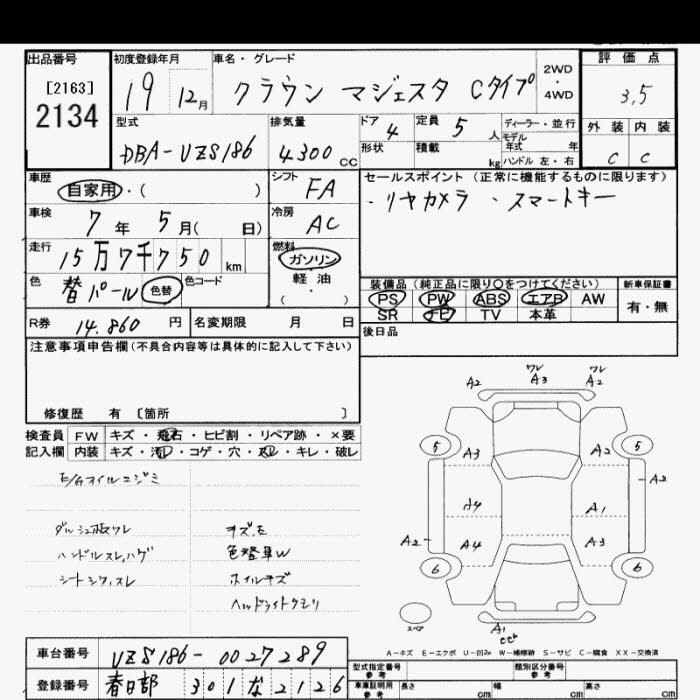 出品番号
[2163]
2134
初度登録年月
19 12月
車名・グレード
クラウン マジェスタ Cタイプ
2WD
・
4WD
評価点
3,5
外装 内装
C C
型式
DBA-UZS186
排気量
4300 cc
ドア
4
定員
5 人
形状
積載
kg
ディーラー・並行
モデル
年式 年
ハンドル 左・右
車歴
自家用・( )
シフト
FA
車検
7年 5月( 日)
冷房
AC
走行
15万7千750 km
燃料
ガソリン
・
軽油
・
( )
色
替パール 色替
色コード
R券 14,860 円
名変期限 月 日
セールスポイント (正常に機能するものに限ります)
・リヤカメラ ・スマートキー
装備品 (純正品に限り〇をつけてください)
PS PW ABS エアB AW
SR TV 本革
新車保証書
有・無
後日品
注意事項申告欄(不具合内容等は具体的に記入して下さい)
修復歴 有 〔箇所 〕
検査員
記入欄
FW キズ・飛石・ヒビ割・リペア跡・×要
内装 キズ・汚レ・コゲ・穴・スレ・キレ・破レ
E/Gオイルニジミ
ダッシュ板ワレ
ハンドルスレ,ハゲ
シートシワ,スレ
キズ、E
色替車W
ホイルキズ
ヘッドライトクモリ
A2 ワレ A3 ワレ A2
5 5
A3 A2
A2
A4 A1
A2 A4 A3
6 6
スペア
A1
A-キズ E-エクボ U-凹み W-補修跡 S-サビ C-腐食 XX-交換済
車台番号
UZS186-0027289
登録番号
春日部 301 な 2126
型式指定番号
参考
類別区分番号
参考
車庫証明用
参考
長さ cm
幅 cm
高さ cm